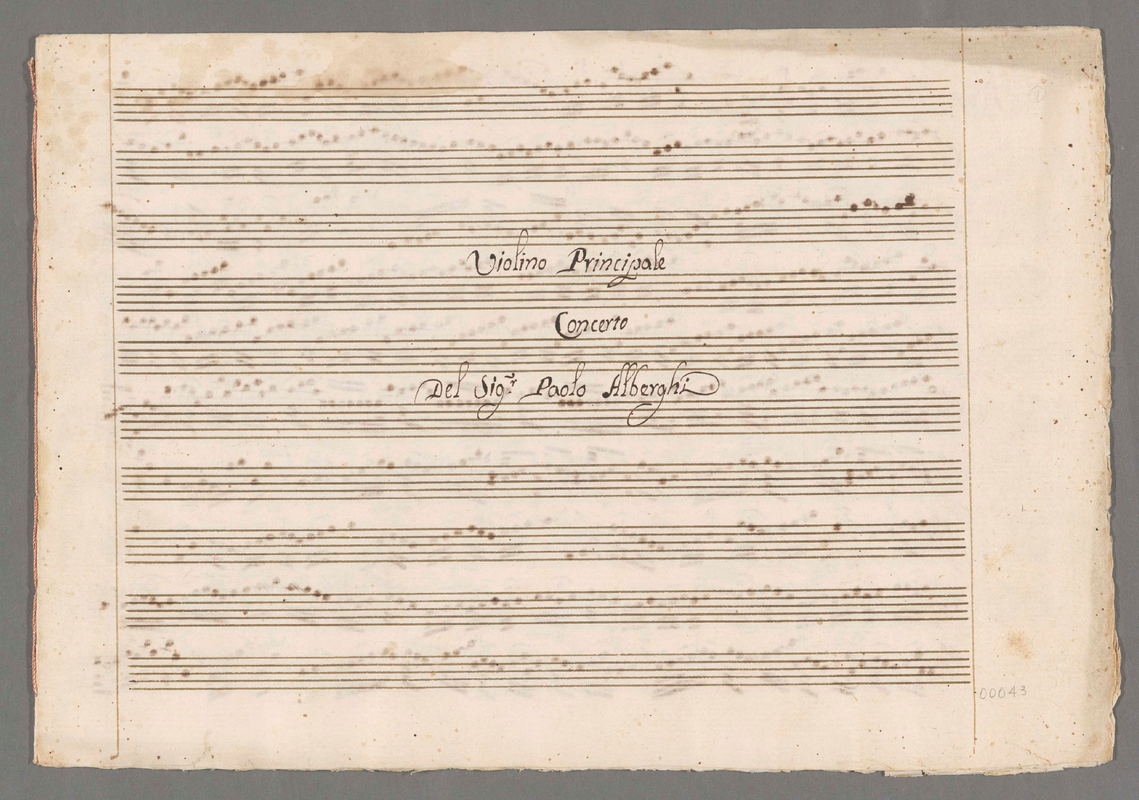 Violino Principale
Concerto
Del Sig.r Paolo Alberghi
00043